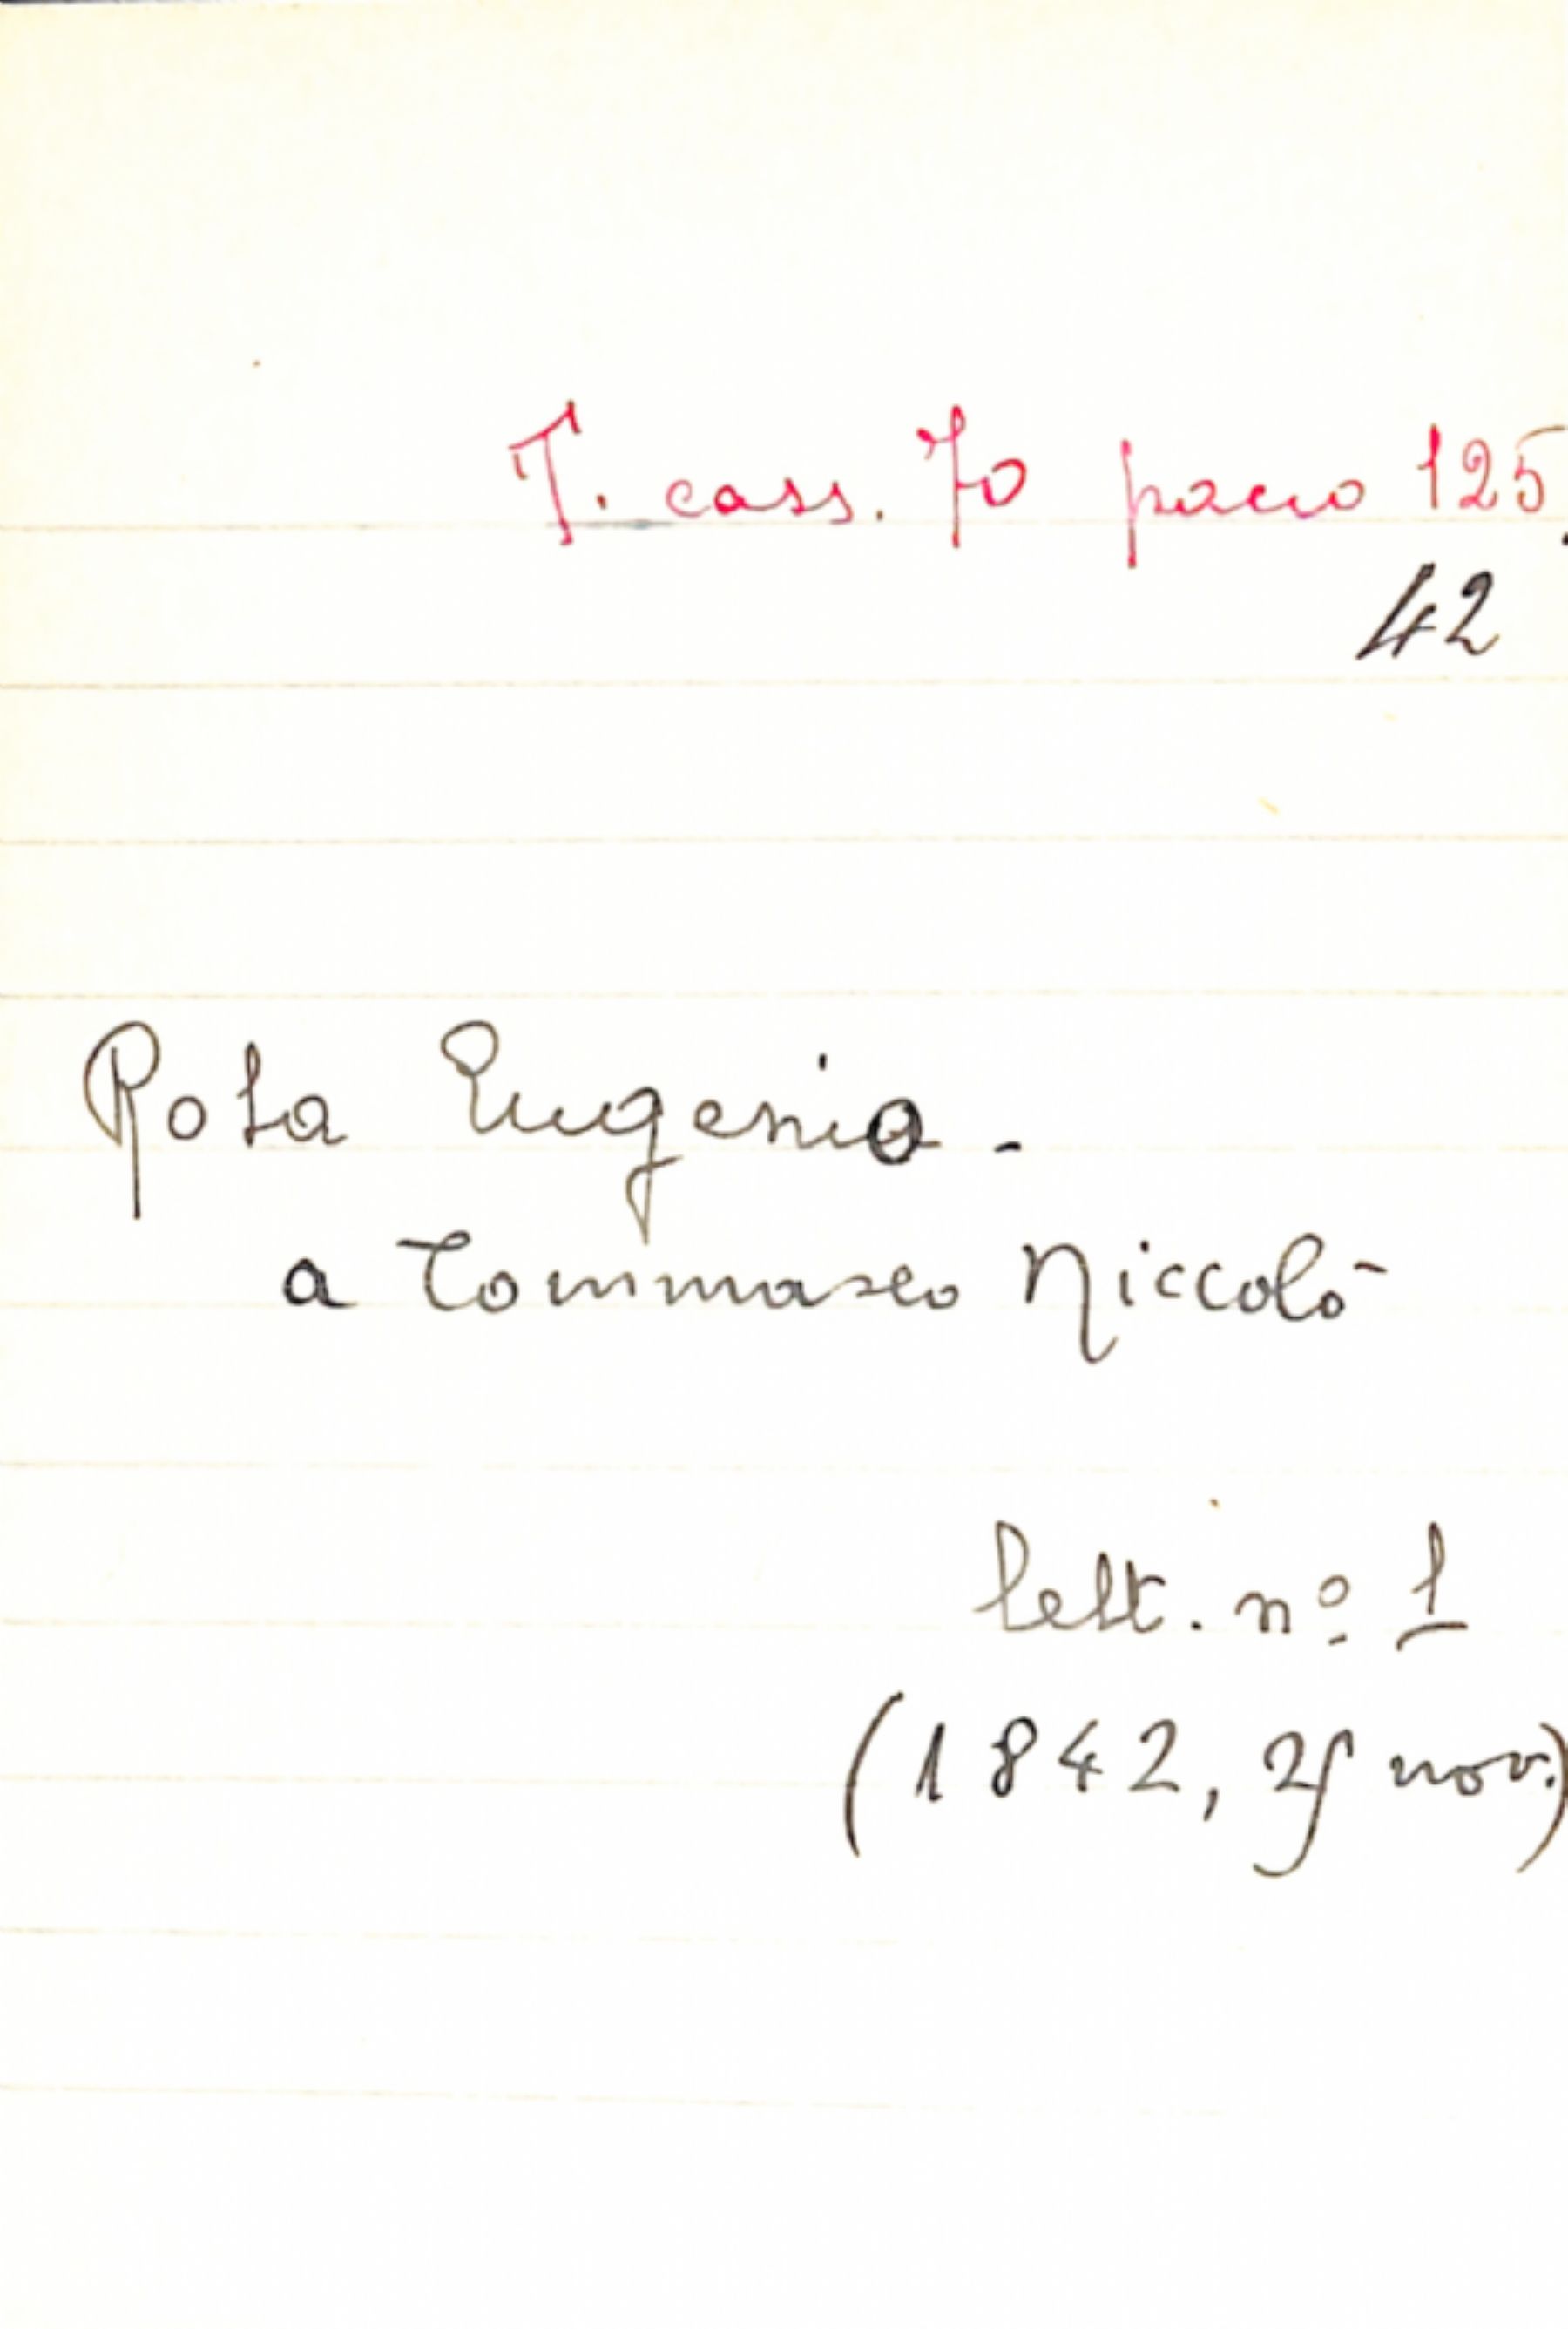 T. cass. 70 pacco 125.
42
Rota Eugenio -
a Tommaseo Niccolò
lett. nº 1
(1842, 25 nov.)